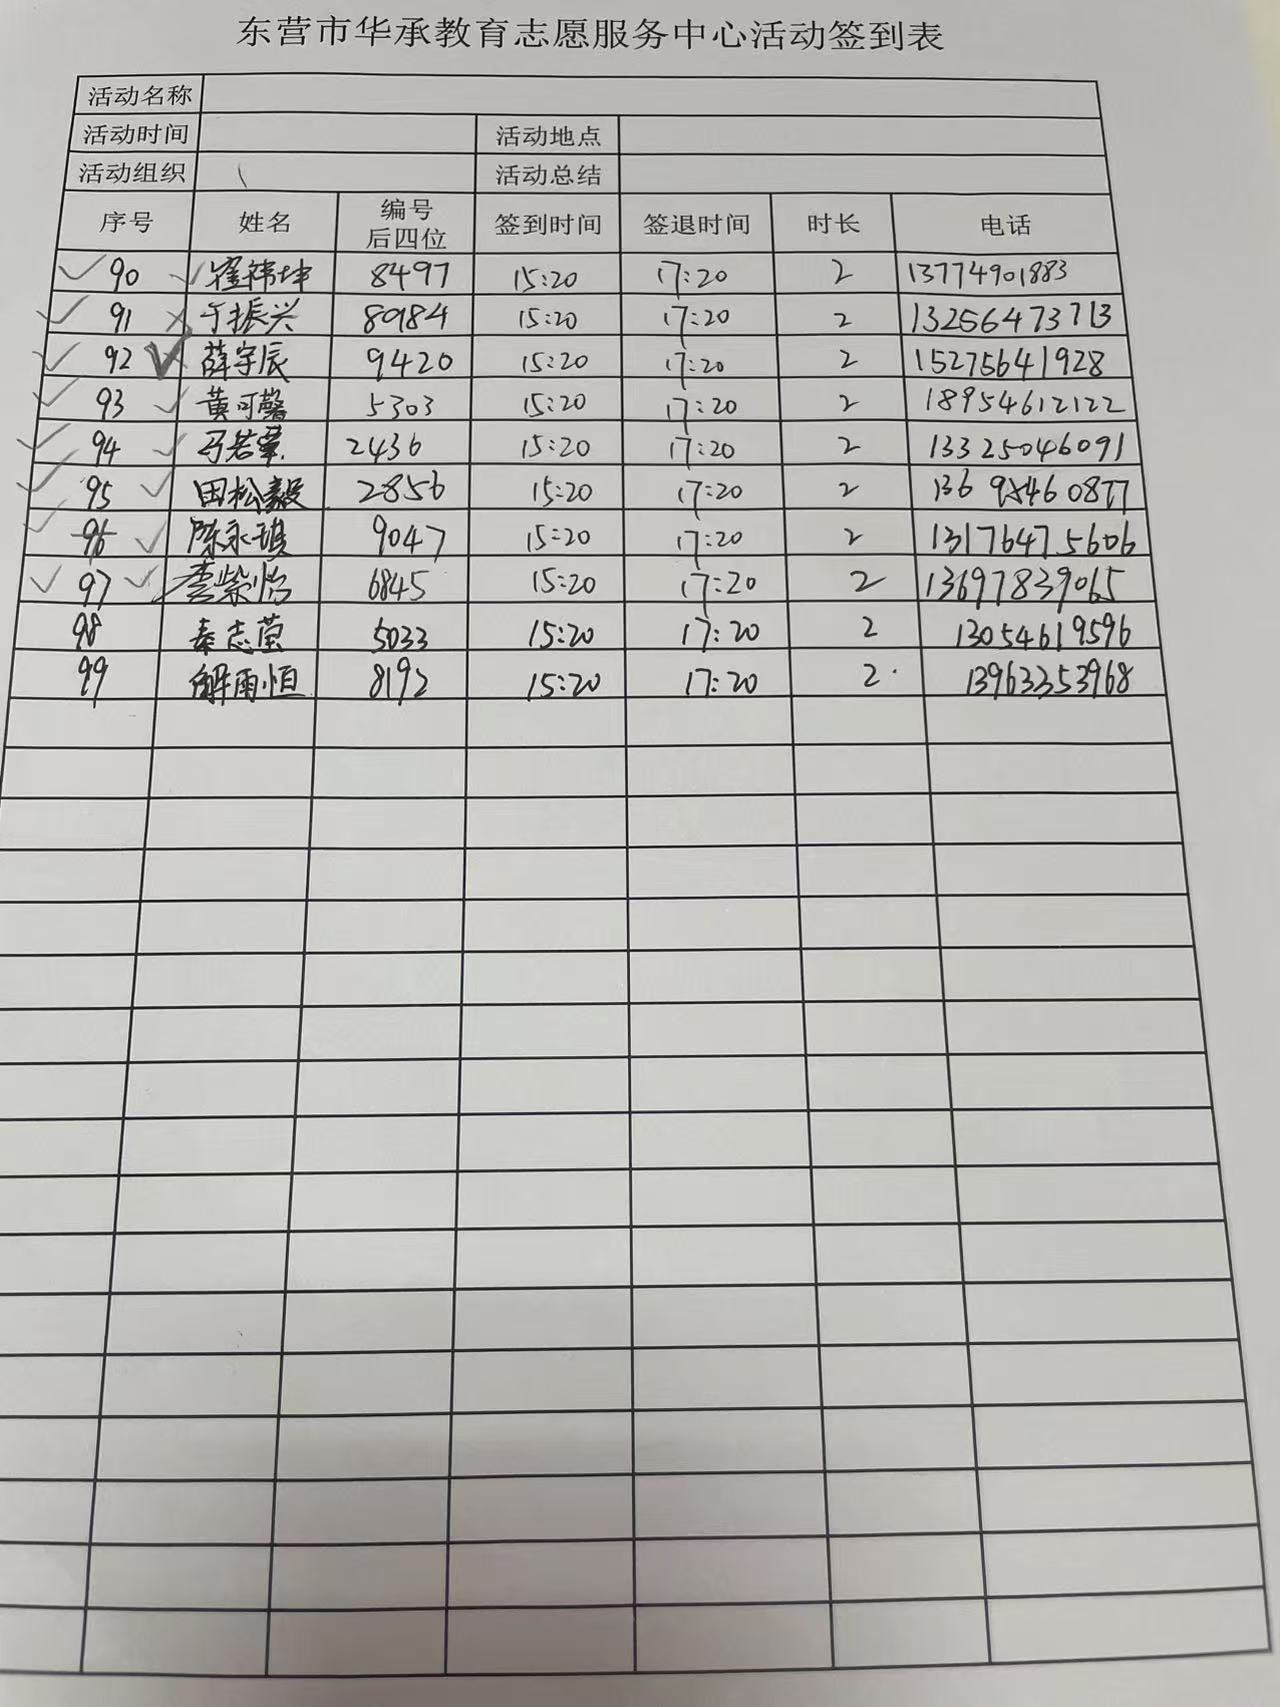 东营市华承教育志愿服务中心活动签到表
活动名称
活动时间 活动地点
活动组织 活动总结
序号 姓名 编号后四位 签到时间 签退时间 时长 电话
90 崔祎坤 8497 15:20 17:20 2 13774901883
91 于振兴 80984 15:20 17:20 2 13256473713
92 薛宇辰 9420 15:20 17:20 2 15275641928
93 黄可馨 5303 15:20 17:20 2 18954612122
94 马若 2436 15:20 17:20 2 13325046091
95 田松毅 2856 15:20 17:20 2
96 陈永琪 9047 15:20 17:20 2 13176475606
97 李紫怡 6845 15:20 17:20 2 13697839065
98 秦志莹 5033 15:20 17:20 2 13054619596
99 解雨恒 8192 15:20 17:20 2 13963353968